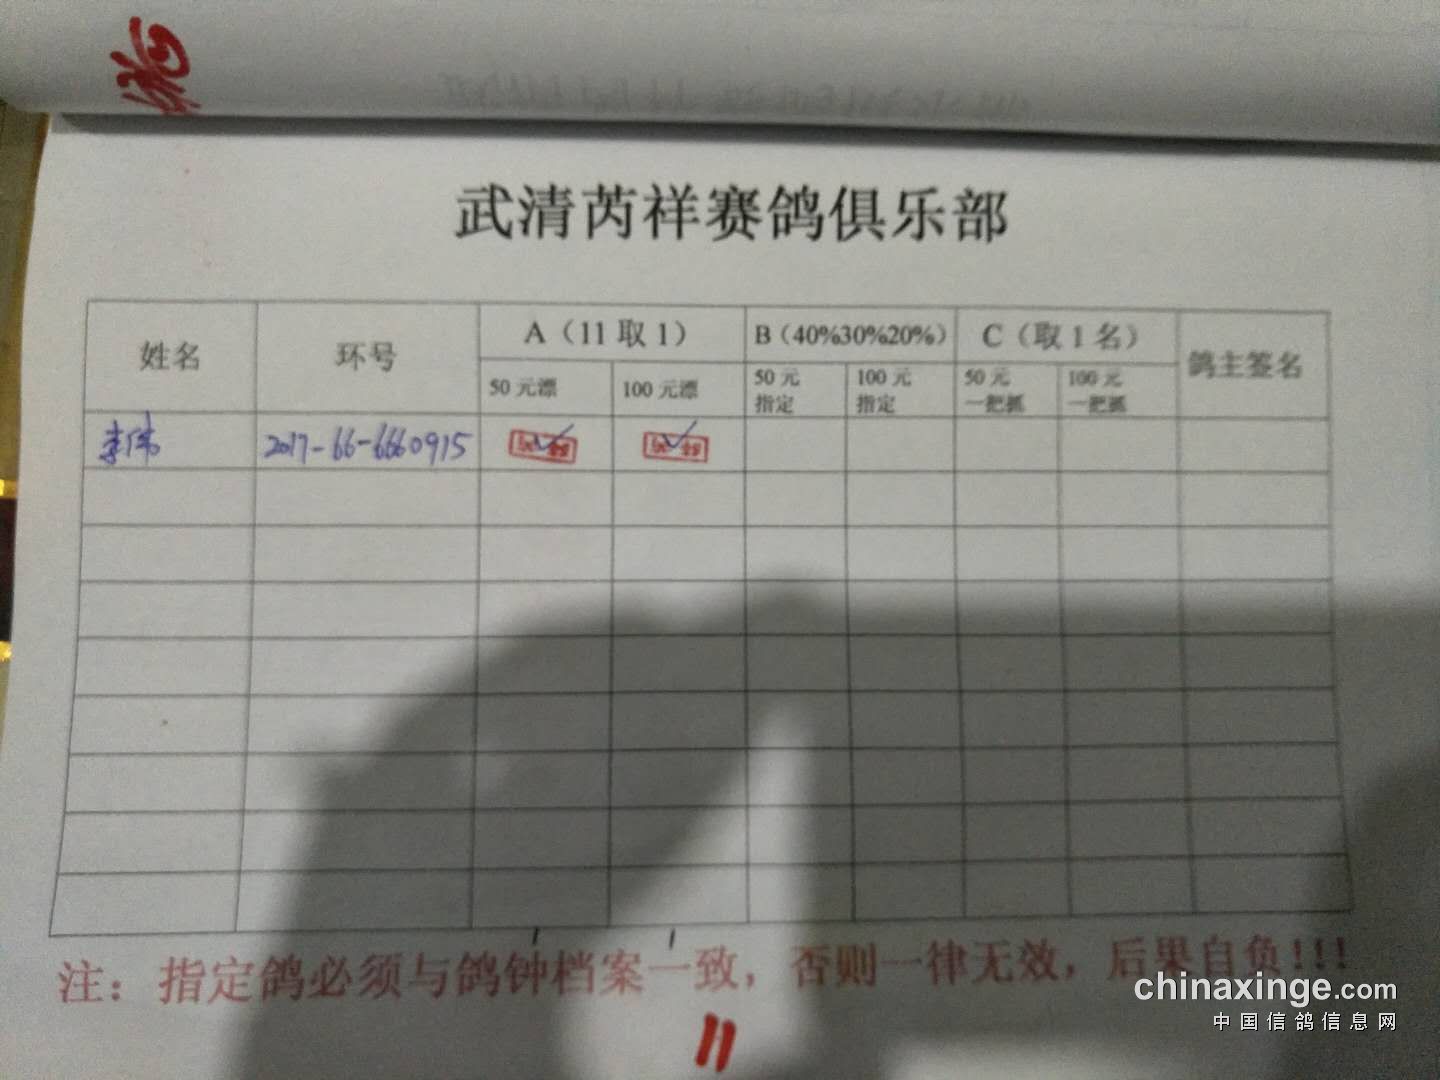 武清芮祥赛鸽俱乐部
姓名 环号 A（11 取 1） B（40%30%20%） C（取 1 名） 鸽主签名
50 元漂 100 元漂 50 元指定 100 元指定 50 元一把抓 100 元一把抓
李伟 2017-66-6660915 ✓ ✓
注：指定鸽必须与鸽钟档案一致，否则一律无效，后果自负!!!
11
chinaxinge.com
中国信鸽信息网